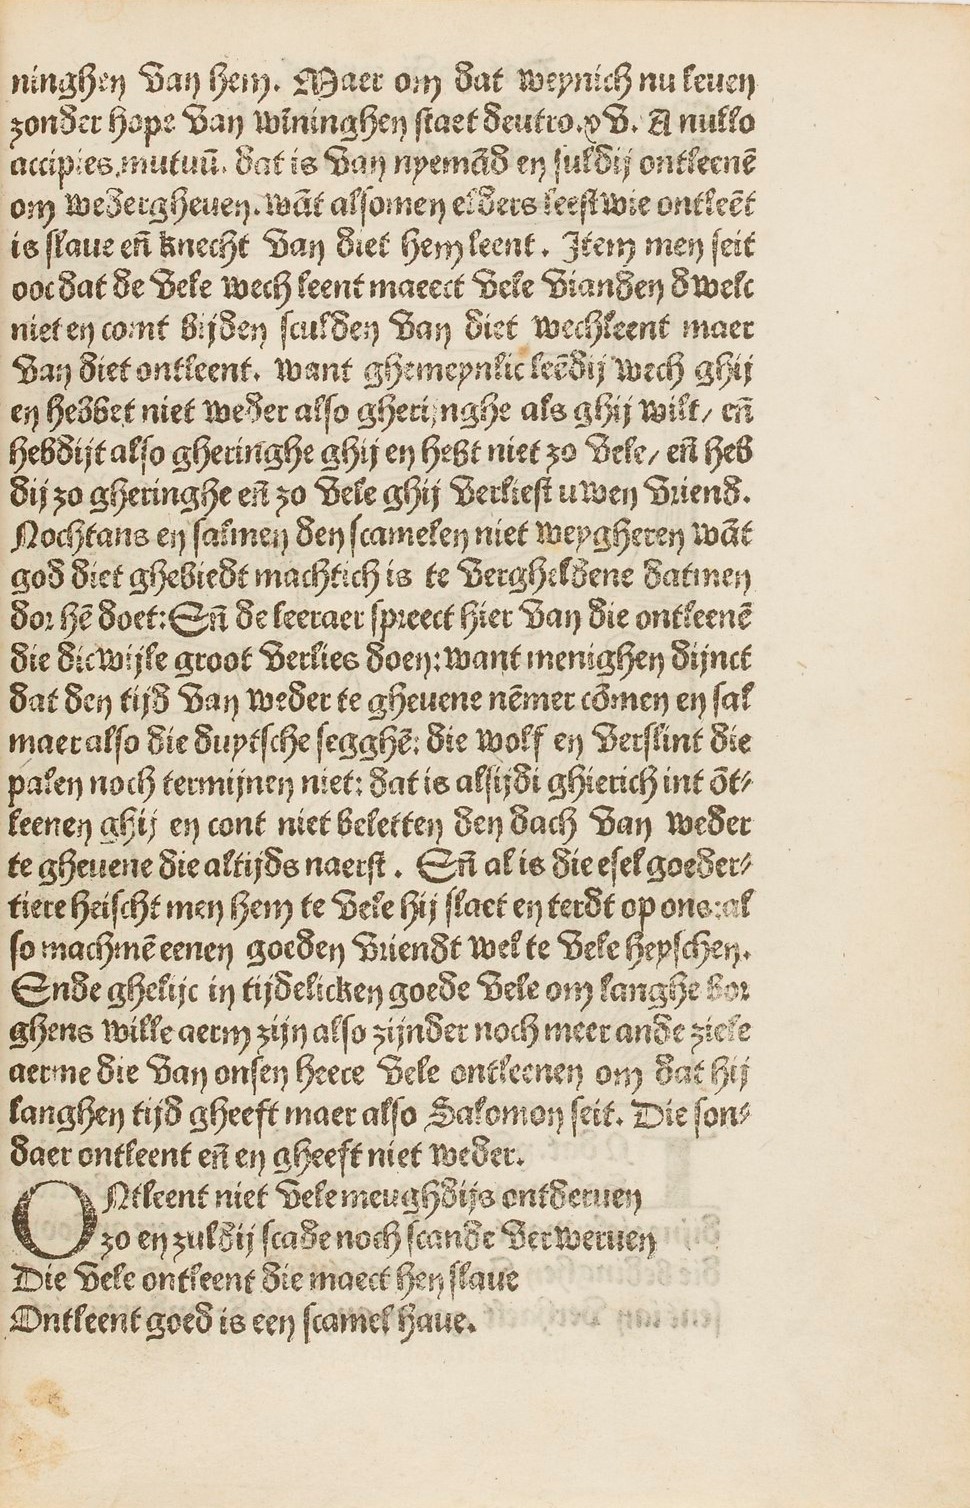 ninghen van hem. Maer om dat weynich nu leuen
zonder hope van wīninghen staet deutro.xv. A nullo
accipies.mutuū. dat is van nyemād en suldij ontleenē
om wedergheuen. wāt alsomen elders leest wie ontleēt
is slaue eñ knecht van diet hem leent. Item men seit
ooc dat de vele wech leent maect vele vianden dwelc
niet en comt bijden sculden van diet wechleent maer
van diet ontleent. want ghemeynlic leēdij wech ghij
en hebbet niet weder also gheringhe als ghij wilt/ eñ
hebdijt also gheringhe ghij en hebt niet zo vele/ eñ heb
dij zo gheringhe eñ zo vele ghij verliest uwen vriend.
Nochtans en salmen den scamelen niet weygheren wāt
god diet ghebiedt machtich is te vergheldene datmen
dor hē doet: Eñ de leeraer spreect hier van die ontleenē
die dicwijle groot verlies doen: want menighen dijnct
dat den tijd van weder te gheuene nēmer cōmen en sal
maer also die duytsche segghē: die wolf en verslint die
palen noch termijnen niet: dat is alsijdi ghierich int ōt⸗
leenen ghij en cont niet beletten den dach van weder
te gheuene die altijds naerst. Eñ al is die esel goeder⸗
tiere heischt men hem te vele hij slaet en terdt op ons: al
so machmē eenen goeden vriendt wel te vele heyschen.
Ende ghelijc in tijdelicken goede vele om langhe bor
ghens wille aerm zijn also zijnder noch meer ande ziele
aerme die van onsen heere vele ontleenen om dat hij
langhen tijd gheeft maer also Salomon seit. Die son⸗
daer ontleent eñ en gheeft niet weder.
ONtleent niet vele meughdijs ontderuen
zo en zuldij scade noch scande verweruen
Die vele ontleent die maect hen slaue
Ontleent goed is een scamel haue.